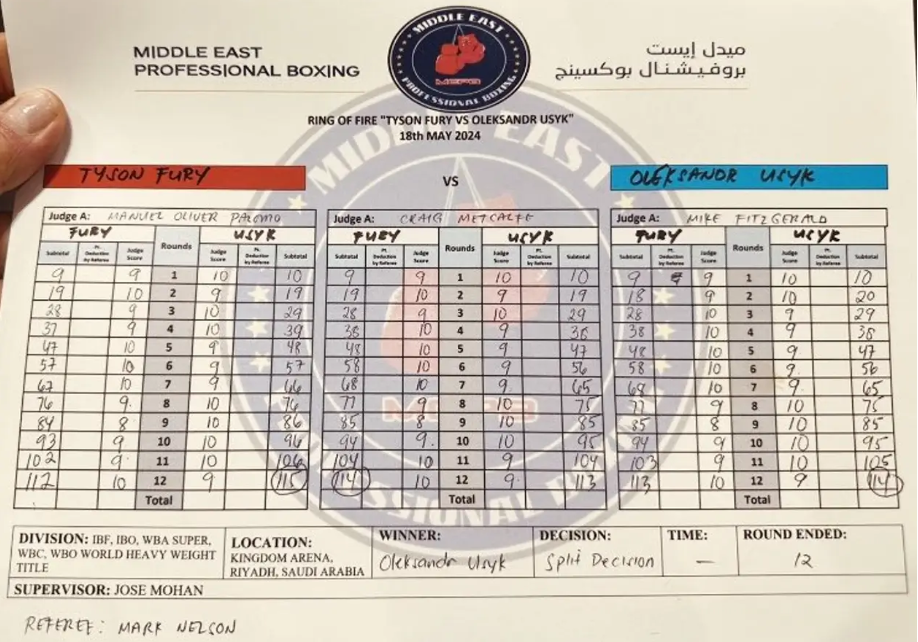 MIDDLE EAST
PROFESSIONAL BOXING
MIDDLE EAST
MEPB
PROFESSIONAL BOXING
ميدل إيست
بروفيشنال بوكسينج
RING OF FIRE "TYSON FURY VS OLEKSANDR USYK"
18th MAY 2024
TYSON FURY VS OLEKSANDR USYK
Judge A: MANUEL OLIVER PALOMO Judge A: CRAIG METCALFE Judge A: MIKE FITZGERALD
FURY Rounds USYK FURY Rounds USYK FURY Rounds USYK
Subtotal Pt. Deduction by Referee Judge Score Judge Score Pt. Deduction by Referee Subtotal Subtotal Pt. Deduction by Referee Judge Score Judge Score Pt. Deduction by Referee Subtotal Subtotal Pt. Deduction by Referee Judge Score Judge Score Pt. Deduction by Referee Subtotal
9 9 1 10 10 9 9 1 10 10 9 9 1 10 10
19 10 2 9 19 19 10 2 9 19 18 9 2 10 20
28 9 3 10 29 28 9 3 10 29 28 10 3 9 29
37 9 4 10 39 38 10 4 9 38 38 10 4 9 38
47 10 5 9 48 48 10 5 9 47 48 10 5 9 47
57 10 6 9 57 58 10 6 9 56 58 10 6 9 56
67 10 7 9 66 68 10 7 9 65 68 10 7 9 65
76 9 8 10 76 77 9 8 10 75 77 9 8 10 75
84 8 9 10 86 85 8 9 10 85 85 8 9 10 85
93 9 10 10 96 94 9 10 10 95 94 9 10 10 95
102 9 11 10 106 104 10 11 9 104 103 9 11 10 105
112 10 12 9 115 114 10 12 9 113 113 10 12 9 114
Total Total Total
DIVISION: IBF, IBO, WBA SUPER, WBC, WBO WORLD HEAVY WEIGHT TITLE
LOCATION: KINGDOM ARENA, RIYADH, SAUDI ARABIA
WINNER: Oleksandr Usyk
DECISION: Split Decision
TIME: —
ROUND ENDED: 12
SUPERVISOR: JOSE MOHAN
REFEREE: MARK NELSON